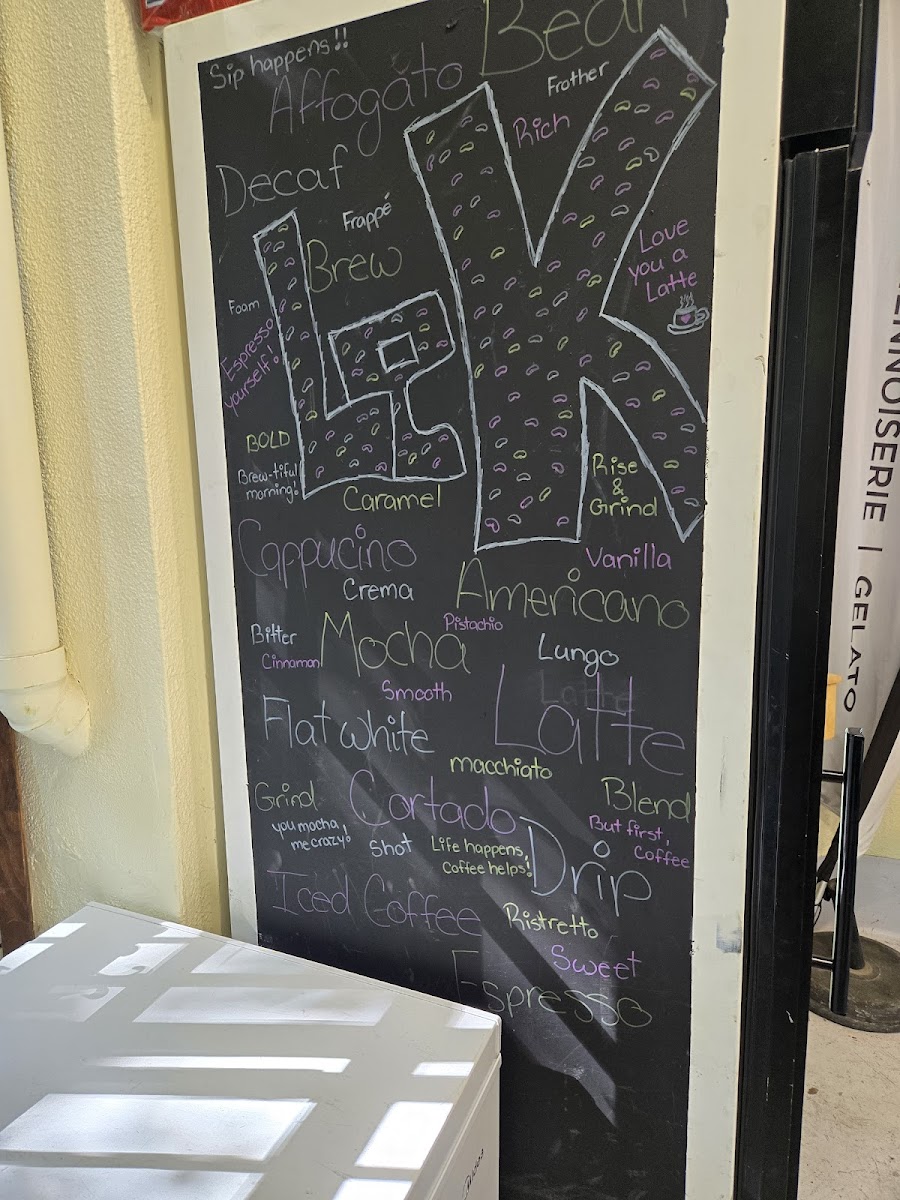 Bean
Sip happens!!
Affogato
Frother
Rich
Decaf
Frappé
Brew
Love
you a
Latte
Foam
Espresso
yourself!
BOLD
Brew-tiful
morning!
Caramel
Rise
&
Grind
Cappucino
Vanilla
Crema
Americano
Pistachio
Bitter
Mocha
Lungo
Cinnamon
Smooth
Latte
Latte
Flat white
macchiato
Grind
Cortado
Blend
you mocha
me crazy!
Shot
Life happens,
Coffee helps!
But first,
Coffee
Drip
Iced Coffee
Ristretto
Sweet
Espresso
ENNOISERIE | GELATO
Midea